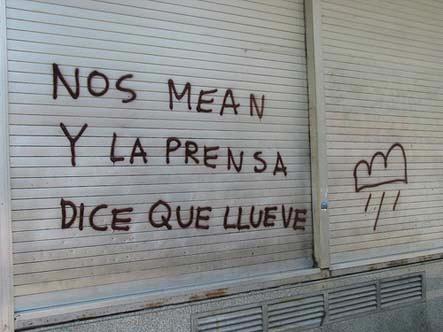 NOS MEAN
Y LA PRENSA
DICE QUE LLUEVE